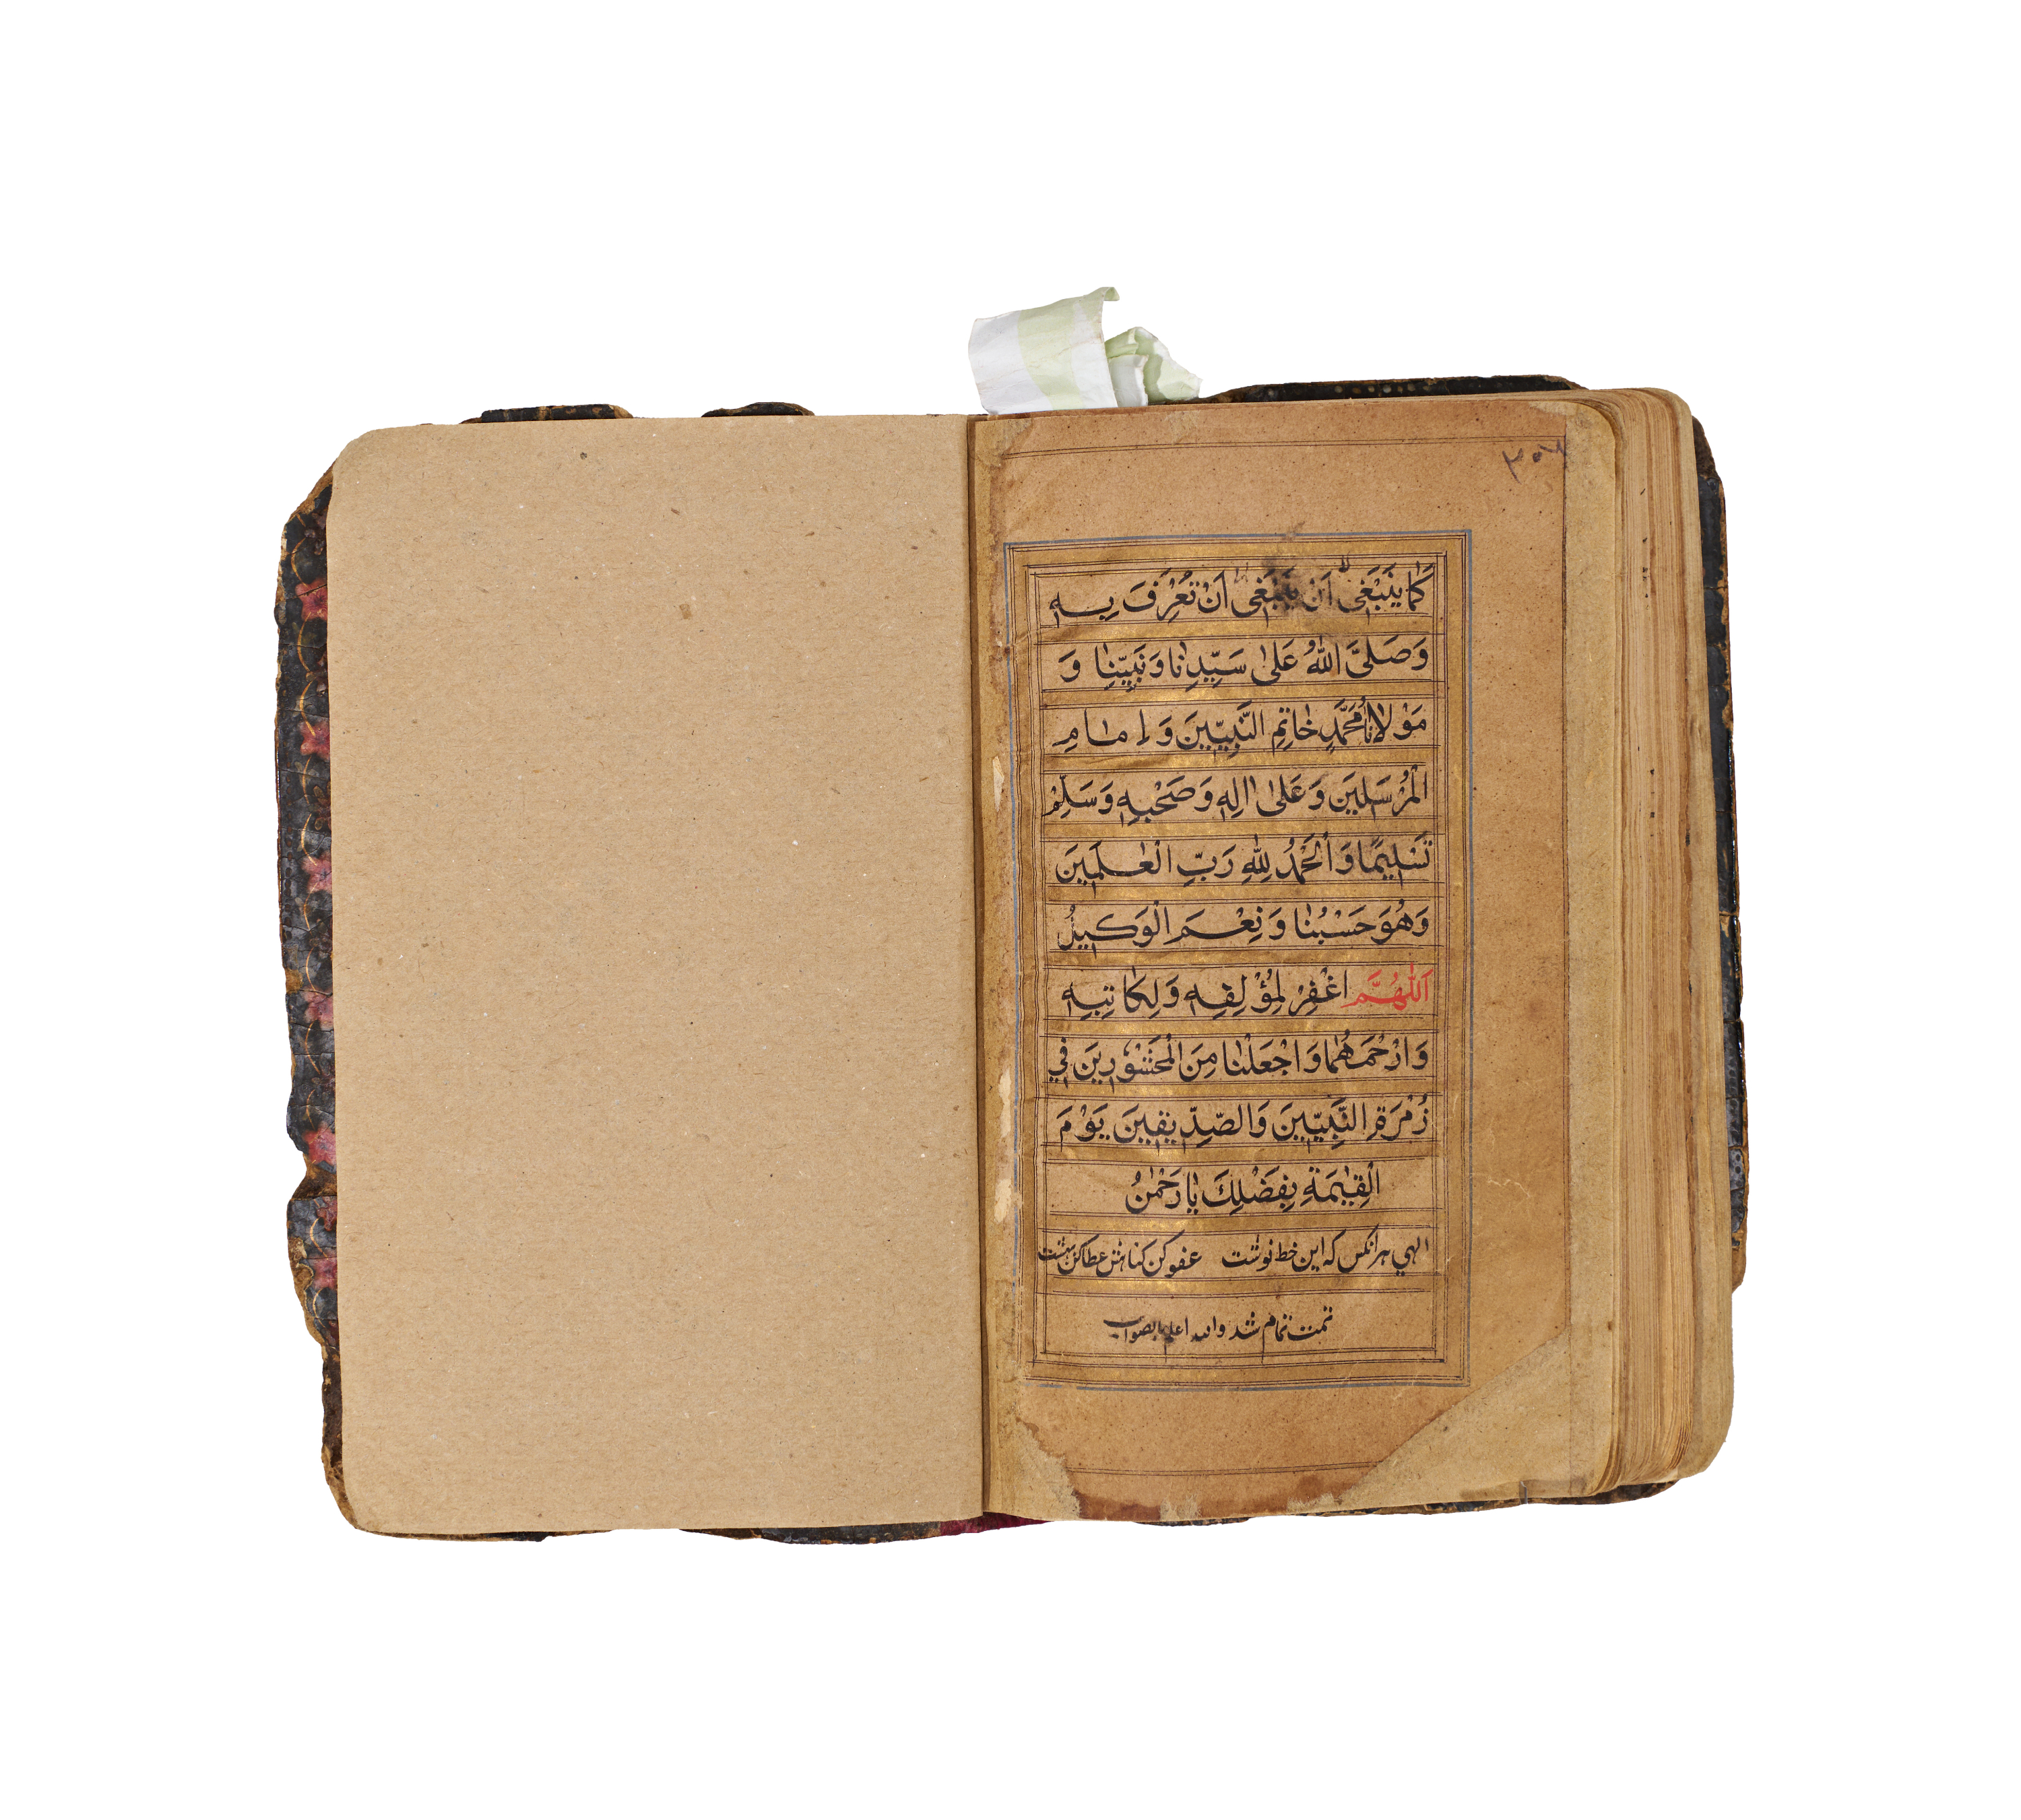 كَمَا يَنْبَغِىْ اَنْ يَنْبَغِىْ اَنْ تُعْرَفَ بِهٖ
وَصَلَّى اللّٰهُ عَلٰى سَيِّدِنَا وَنَبِيِّنَا وَ
مَوْلَانَا مُحَمَّدٍ خَاتِمِ النَّبِيِّيْنَ وَاِمَامِ
الْمُرْسَلِيْنَ وَعَلٰى اٰلِهٖ وَصَحْبِهٖ وَسَلِّمْ
تَسْلِيْمًا وَالْحَمْدُ لِلّٰهِ رَبِّ الْعٰلَمِيْنَ
وَهُوَ حَسْبُنَا وَنِعْمَ الْوَكِيْلُ
اَللّٰهُمَّ اغْفِرْ لِمُؤَلِفِهٖ وَلِكَاتِبِهٖ
وَارْحَمْهُمَا وَاجْعَلْنَا مِنَ الْمَحْشُوْرِيْنَ فِيْ
زُمْرَةِ النَّبِيِّيْنَ وَالصِّدِّيْقِيْنَ يَوْمَ
الْقِيٰمَةِ بِفَضْلِكَ يَا رَحْمٰنُ
الهي هرانكس كه اين خط نوشت عفو كن كناهش عطا كن بهشت
تمت تمام شد والله اعلم بالصواب